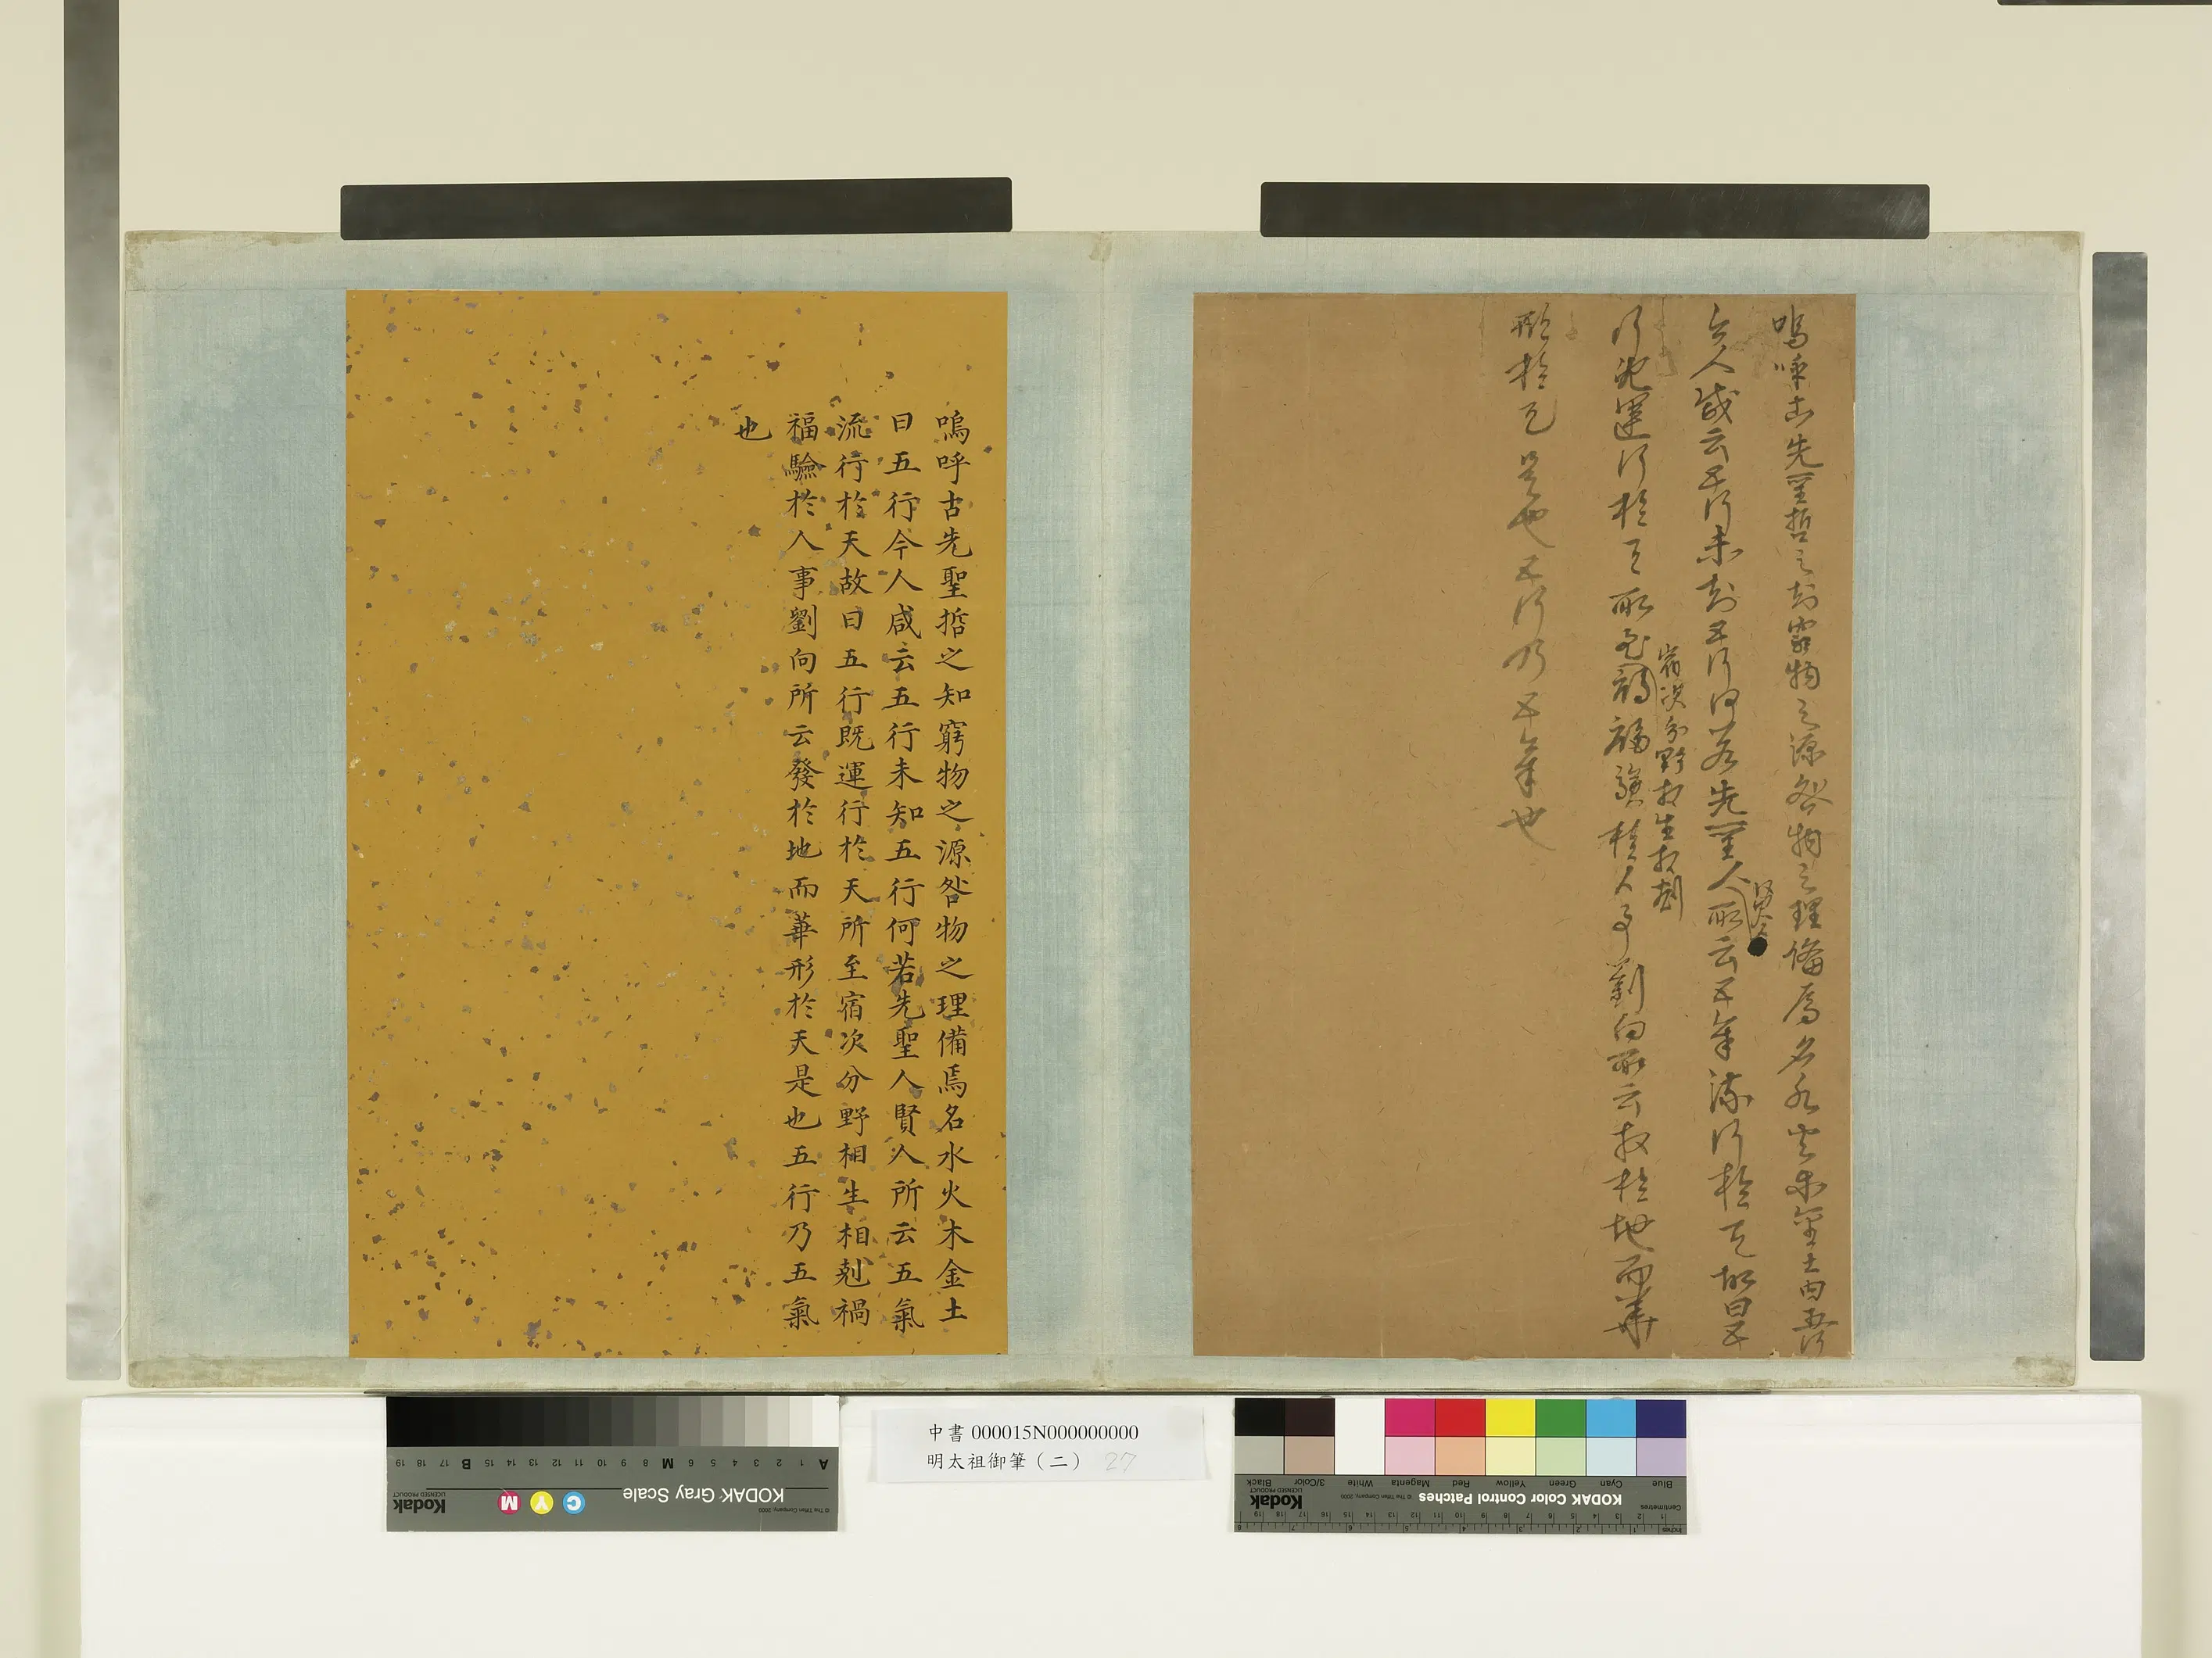 嗚呼古先聖哲之知窮物之源咎物之理俻焉名水火木金土曰五行
今人咸云五行未知五行何若先聖人所云五氣流行於天故曰五
賢人
宿次分野相生相剋
行既運行於天所至禍福驗於人事劉向所云發於地而華
形於天是也五行乃五氣也
嗚呼古先聖哲之知窮物之源咎物之理備焉名水火木金土
曰五行今人咸云五行未知五行何若先聖人賢人所云五氣
流行於天故曰五行既運行於天所至宿次分野相生相剋禍
福驗於人事劉向所云發於地而華形於天是也五行乃五氣
也
中書 000015N000000000
明太祖御筆（二） 27
KODAK Gray Scale
Kodak
LICENSED PRODUCT
C Y M
A 1 2 3 4 5 6 M 8 9 10 11 12 13 14 15 B 17 18 19
© The Tiffen Company, 2000
KODAK Color Control Patches
Kodak
LICENSED PRODUCT
© The Tiffen Company, 2000
Blue Cyan Green Yellow Red Magenta White 3/Color Black
Centimetres
Inches